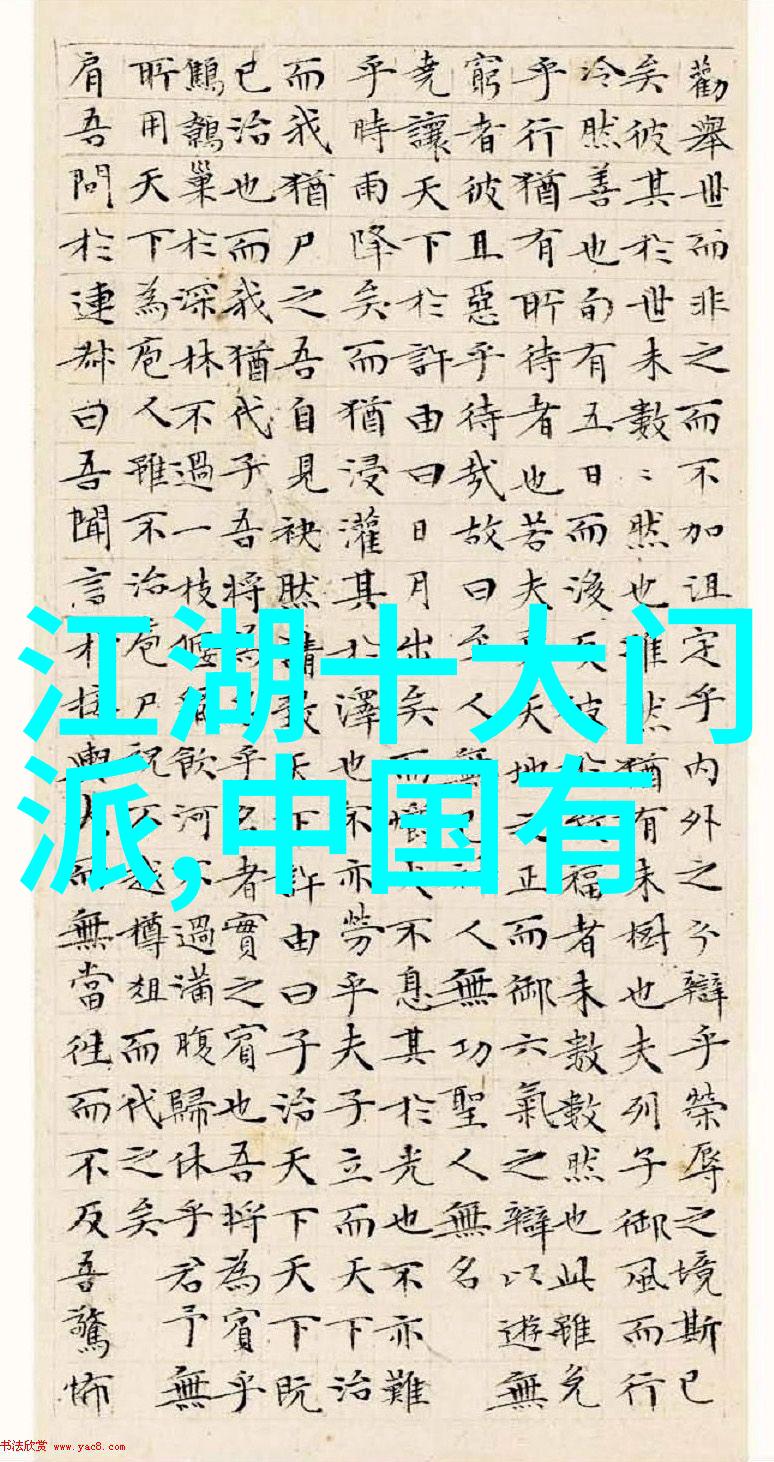 勸舉世而非之而不加沮定乎內外之分辯乎榮辱之境斯已
矣彼其於世未數〻然也雖然猶有未樹也夫列子御風而行
冷然善也旬有五日而後反彼於致福者未數數然也此雖免
乎行猶有所待者也若夫乘天地之正而御六氣之辯以遊無
窮者彼且惡乎待哉故曰至人無己神人無功聖人無名
堯讓天下於許由曰日月出矣而爝火不息其於光也不亦難
乎時雨降矣而猶浸灌其於澤也不亦勞乎夫子立而天下治
而我猶尸之吾自見袂然請致天下許由曰子治天下天下既
已治也而我猶代子吾將為名乎名者實之賓也吾將為賓乎
鷦鷯巢於深林不過一枝偃鼠飲河不過滿腹歸休乎君予無
所用天下為庖人雖不治庖尸祝不越樽俎而代之矣
肩吾問於連叔曰吾聞言於接輿大而無當往而不反吾驚怖
江湖十大门
派,中国有
书法欣赏 www.yac8.com